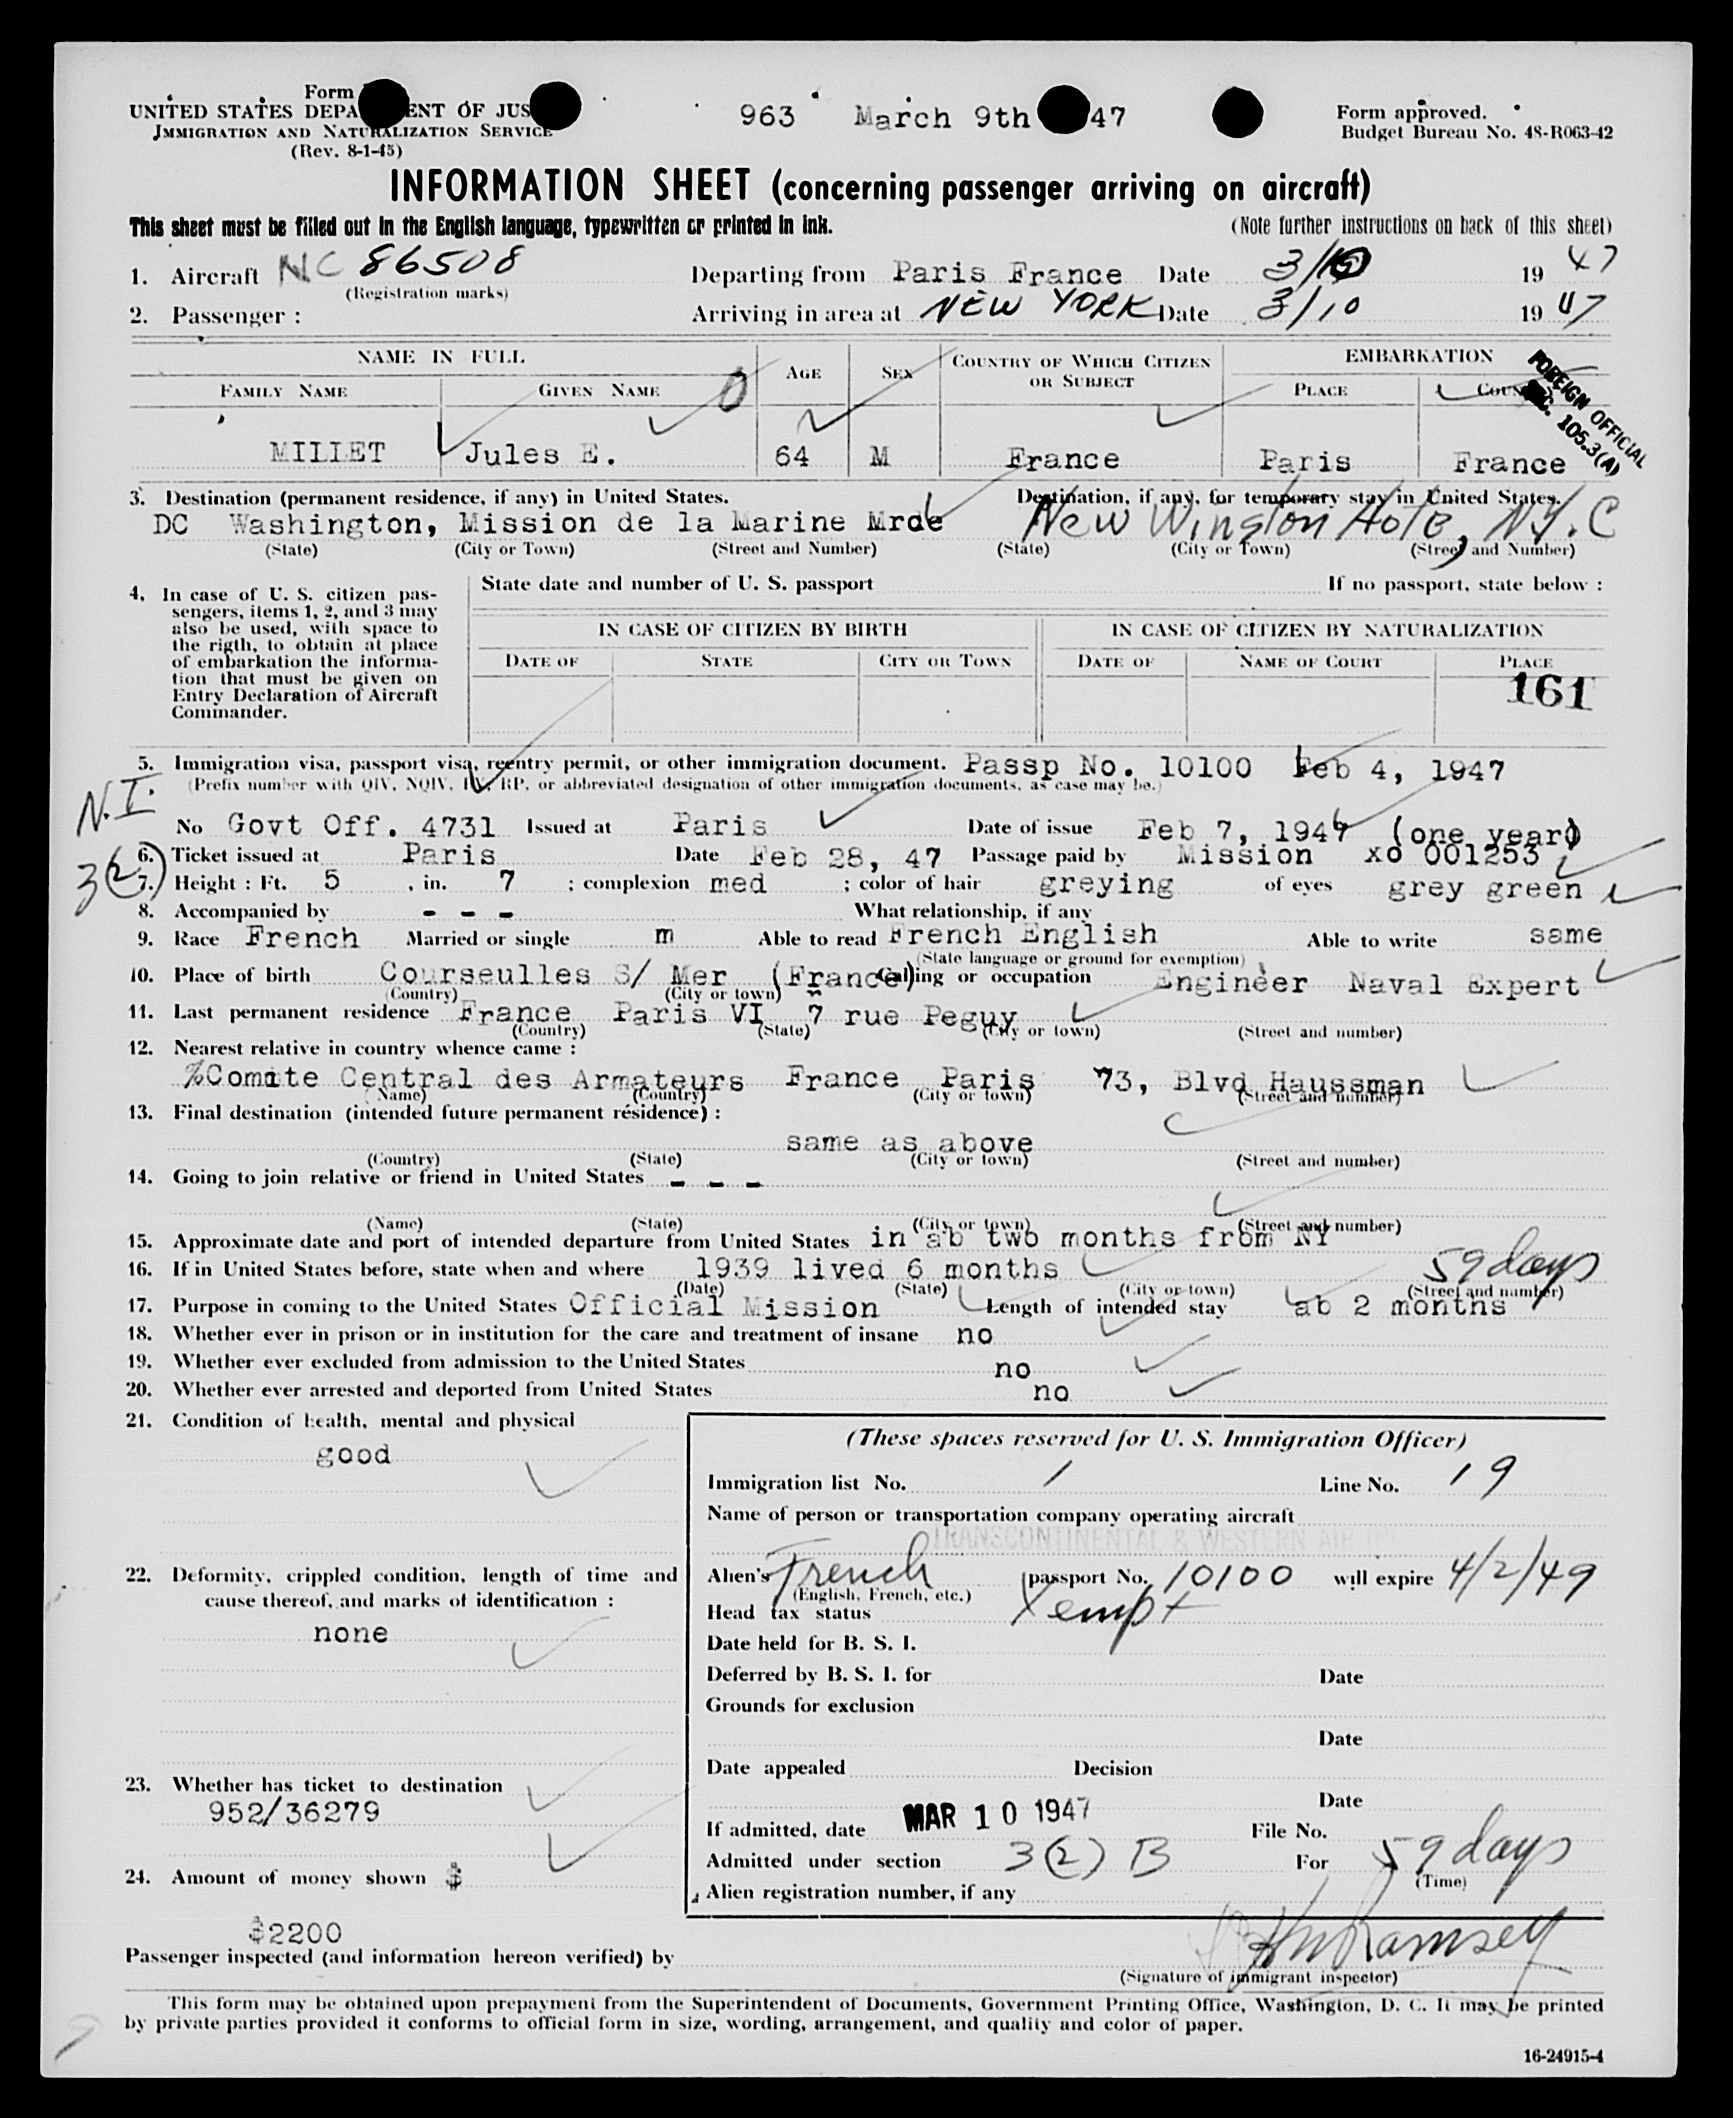 Form
UNITED STATES DEPA ENT OF JUS
963 March 9th 47
Form approved.
IMMIGRATION AND NATURALIZATION SERVICE
Budget Bureau No. 48-R063-42
(Rev. 8-1-45)
INFORMATION SHEET (concerning passenger arriving on aircraft)
This sheet must be filled out in the English language, typewritten or printed in ink. (Note further instructions on back of this sheet)
1. Aircraft NC 86508 Departing from Paris France Date 3/ 19 47
(Registration marks)
2. Passenger : Arriving in area at NEW YORK Date 3/10 19 47
NAME IN FULL AGE SEX COUNTRY OF WHICH CITIZEN OR SUBJECT EMBARKATION
FAMILY NAME GIVEN NAME PLACE COUN
FOREIGN OFFICIAL
SEC. 105.3(A)
MILLET Jules E. 64 M France Paris France
3. Destination (permanent residence, if any) in United States. Destination, if any, for temporary stay in United States.
DC Washington, Mission de la Marine Mrde New Winston Hote, N.Y.C
(State) (City or Town) (Street and Number) (State) (City or Town) (Street and Number)
4. In case of U. S. citizen pas-
sengers, items 1, 2, and 3 may
also be used, with space to
the rigth, to obtain at place
of embarkation the informa-
tion that must be given on
Entry Declaration of Aircraft
Commander.
State date and number of U. S. passport If no passport, state below :
IN CASE OF CITIZEN BY BIRTH IN CASE OF CITIZEN BY NATURALIZATION
DATE OF STATE CITY OR TOWN DATE OF NAME OF COURT PLACE
161
5. Immigration visa, passport visa, reentry permit, or other immigration document. Passp No. 10100 Feb 4, 1947
(Prefix number with QIV, NQIV, PV, RP, or abbreviated designation of other immigration documents, as case may be.)
N.I.
No Govt Off. 4731 Issued at Paris Date of issue Feb 7, 1947 (one year)
6. Ticket issued at Paris Date Feb 28, 47 Passage paid by Mission xo 001253
3(2)
7. Height : Ft. 5 , in. 7 ; complexion med ; color of hair greying of eyes grey green
8. Accompanied by - - - What relationship, if any
9. Race French Married or single m Able to read French English Able to write same
(State language or ground for exemption)
10. Place of birth Courseulles S/ Mer (France) Calling or occupation Engineer Naval Expert
(Country) (City or town)
11. Last permanent residence France Paris VI 7 rue Peguy
(Country) (State) (City or town) (Street and number)
12. Nearest relative in country whence came :
%Comite Central des Armateurs France Paris 73, Blvd Haussman
(Name) (Country) (City or town) (Street and number)
13. Final destination (intended future permanent résidence) :
same as above
(Country) (State) (City or town) (Street and number)
14. Going to join relative or friend in United States - - -
(Name) (State) (City or town) (Street and number)
15. Approximate date and port of intended departure from United States in ab two months from NY
16. If in United States before, state when and where 1939 lived 6 months 59 days
(Date) (State) (City or town) (Street and number)
17. Purpose in coming to the United States Official Mission Length of intended stay ab 2 months
18. Whether ever in prison or in institution for the care and treatment of insane no
19. Whether ever excluded from admission to the United States no
20. Whether ever arrested and deported from United States no
21. Condition of health, mental and physical
good
22. Deformity, crippled condition, length of time and
cause thereof, and marks of identification :
none
23. Whether has ticket to destination
952/36279
24. Amount of money shown $
$2200
(These spaces reserved for U. S. Immigration Officer)
Immigration list No. 1 Line No. 19
Name of person or transportation company operating aircraft
TRANSCONTINENTAL & WESTERN AIR
Alien's French passport No. 10100 will expire 4/2/49
(English, French, etc.)
Head tax status Xempt
Date held for B. S. I.
Deferred by B. S. I. for Date
Grounds for exclusion
Date
Date appealed Decision
Date
If admitted, date MAR 10 1947 File No.
Admitted under section 3(2) B For 59 days
(Time)
Alien registration number, if any
Passenger inspected (and information hereon verified) by Ramsey
(Signature of immigrant inspector)
This form may be obtained upon prepayment from the Superintendent of Documents, Government Printing Office, Washington, D. C. It may be printed
by private parties provided it conforms to official form in size, wording, arrangement, and quality and color of paper.
16-24915-4